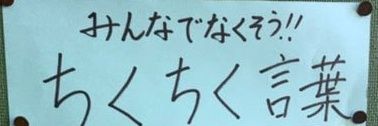 みんなでなくそう!!
ちくちく言葉